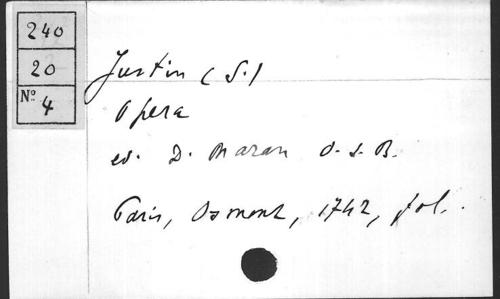 240
20
No 4
Justin (S.)
Opera
ed. D. Maran O.S.B.
Paris, Osmont, 1742, fol.